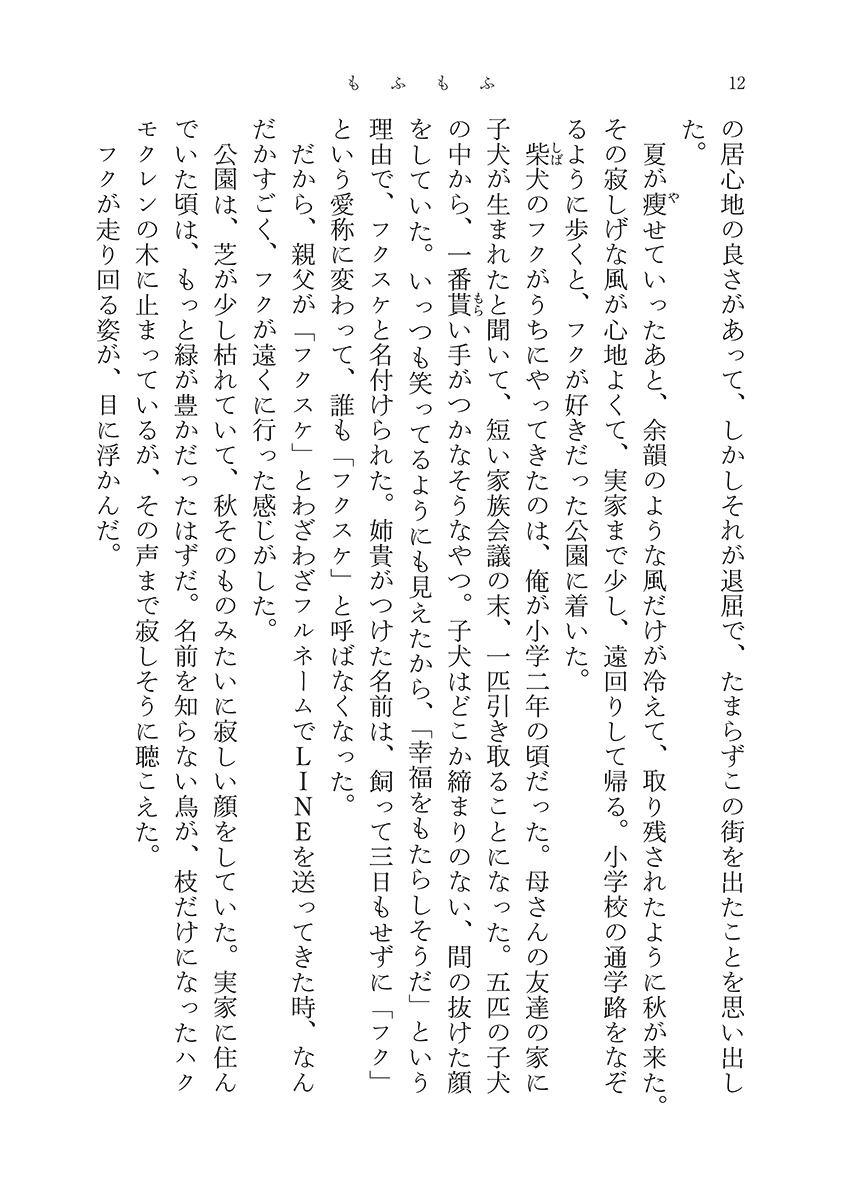 12
もふもふ
の居心地の良さがあって、しかしそれが退屈で、たまらずこの街を出たことを思い出し
た。
夏が痩せていったあと、余韻のような風だけが冷えて、取り残されたように秋が来た。
や
その寂しげな風が心地よくて、実家まで少し、遠回りして帰る。小学校の通学路をなぞ
るように歩くと、フクが好きだった公園に着いた。
柴犬のフクがうちにやってきたのは、俺が小学二年の頃だった。母さんの友達の家に
しば
子犬が生まれたと聞いて、短い家族会議の末、一匹引き取ることになった。五匹の子犬
の中から、一番貰い手がつかなそうなやつ。子犬はどこか締まりのない、間の抜けた顔
もら
をしていた。いっつも笑ってるようにも見えたから、「幸福をもたらしそうだ」という
理由で、フクスケと名付けられた。姉貴がつけた名前は、飼って三日もせずに「フク」
という愛称に変わって、誰も「フクスケ」と呼ばなくなった。
だから、親父が「フクスケ」とわざわざフルネームでLINEを送ってきた時、なん
だかすごく、フクが遠くに行った感じがした。
公園は、芝が少し枯れていて、秋そのものみたいに寂しい顔をしていた。実家に住ん
でいた頃は、もっと緑が豊かだったはずだ。名前を知らない鳥が、枝だけになったハク
モクレンの木に止まっているが、その声まで寂しそうに聴こえた。
フクが走り回る姿が、目に浮かんだ。